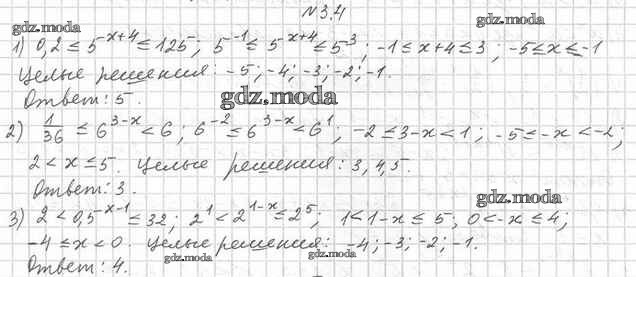 №3.4
gdz.moda gdz.moda
1) 0,2 ≤ 5^{-x+4} ≤ 125; 5^{-1} ≤ 5^{x+4} ≤ 5^{3}; -1 ≤ x+4 ≤ 3; -5 ≤ x ≤ -1
Целые решения: -5; -4; -3; -2; -1.
Ответ: 5.
gdz.moda
2) 1/36 ≤ 6^{3-x} < 6; 6^{-2} ≤ 6^{3-x} < 6^{1}; -2 ≤ 3-x < 1; -5 ≤ -x < -2;
2 < x ≤ 5. Целые решения: 3, 4, 5.
Ответ: 3.
gdz.moda
3) 2 < 0,5^{-x-1} ≤ 32; 2^{1} < 2^{1-x} ≤ 2^{5}; 1 < 1-x ≤ 5; 0 < -x ≤ 4;
-4 ≤ x < 0. Целые решения: -4; -3; -2; -1.
gdz.moda gdz.moda
Ответ: 4.